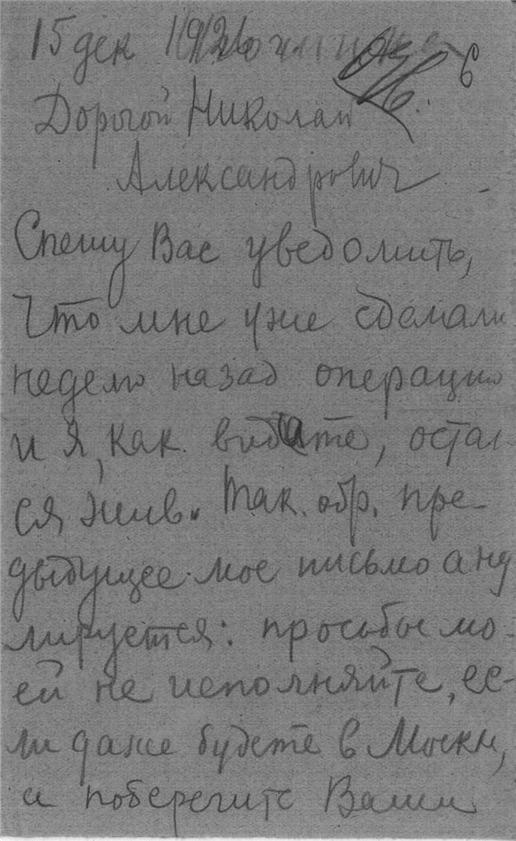 15 дек 1926
Дорогой Николай
Александрович
Спешу Вас уведомить,
что мне уже сделали
неделю назад операцию
и я, как видите, остал
ся жив. Так. обр. пре-
дыдущее мое письмо анну
лируется: просьбы мо-
ей не исполняйте, ес-
ли даже будете в Москве,
и поберегите Ваши